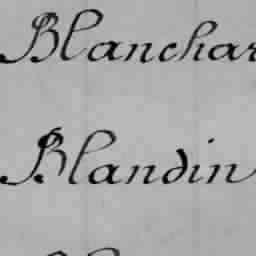 Blanchar
Blandin